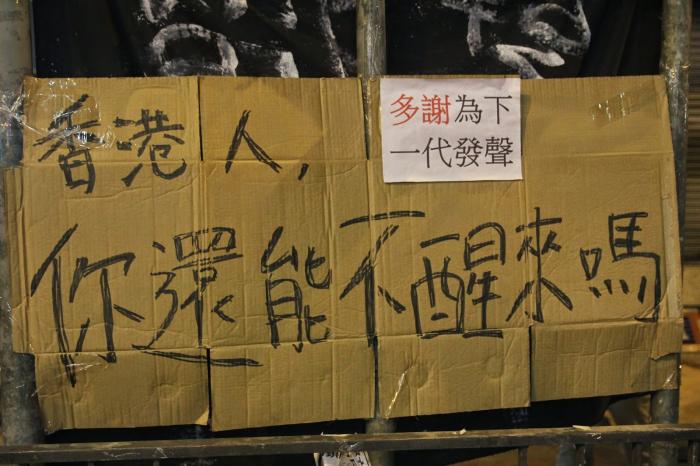 香港人,
多謝為下
一代發聲
你還能不醒來嗎